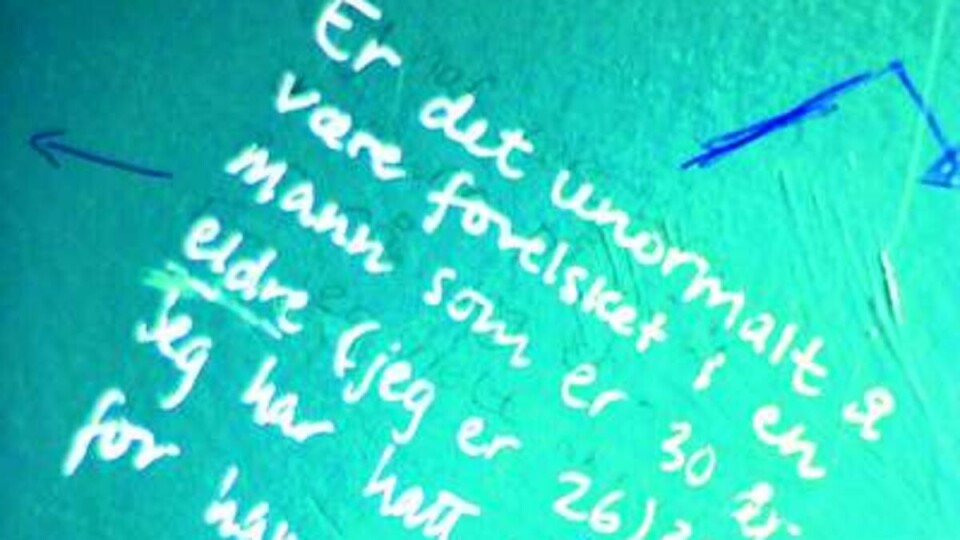 Er det unormalt å
være forelsket i en
mann som er 30 år
eldre (jeg er 26)?
Jeg har hatt
for